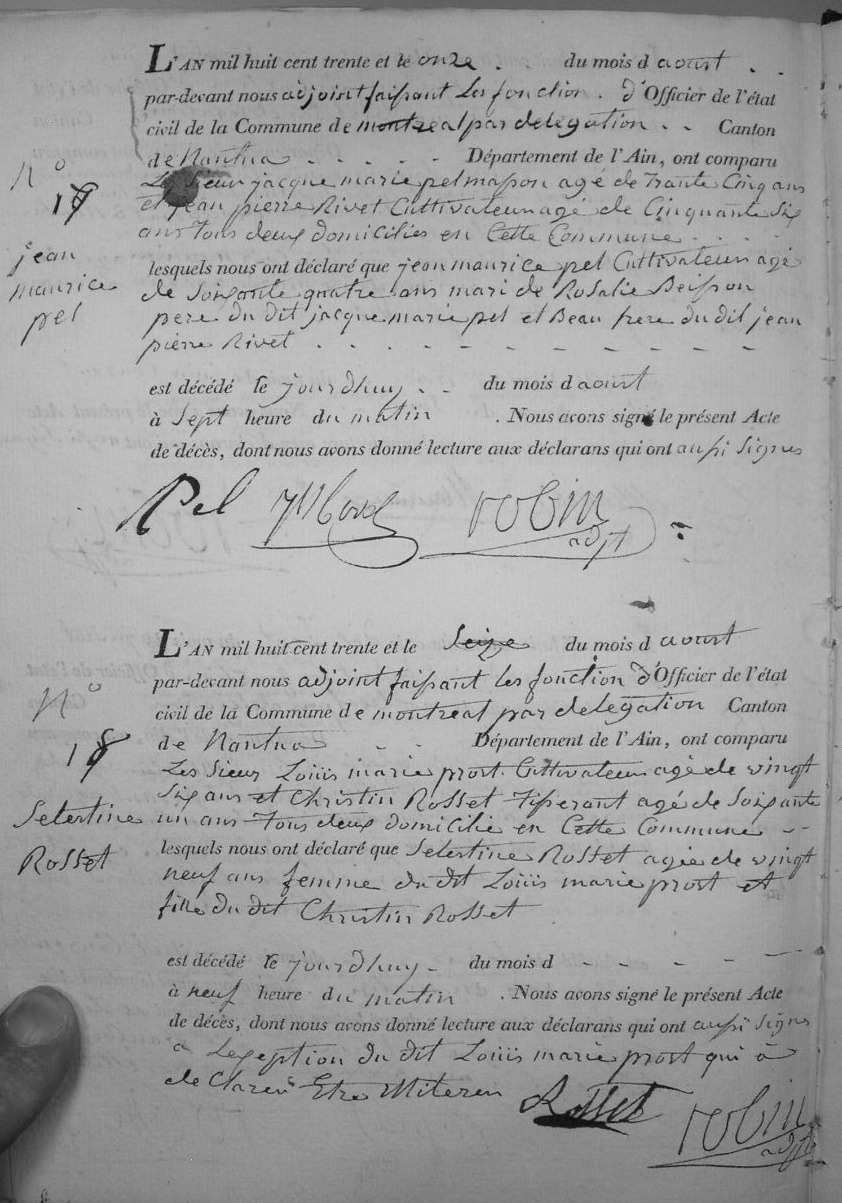 L'AN mil huit cent trente et le onze . . du mois d aoust . .
par-devant nous adjoint faisant les fonction . d'Officier de l'état
civil de la Commune de montreal par delegation . . Canton
de Nantua . . . . . Département de l'Ain, ont comparu
N°
Les Sieur jacque marie pel masson agé de Trante Cinq ans
et jean pierre Rivet Cultivateur agé de Cinquante Six
ans tous deux domiciliés en Cette Commune . . . .
jean
maurice
pel
lesquels nous ont déclaré que jean maurice pel Cultivateur agé
de Soixante quatre ans mari de Rosalie Beisson
pere du dit jacque marie pel et Beau frere du dit jean
pierre Rivet . . . . - - - - - - - -
est décédé le jourdhuy . . du mois d aoust
à Sept heure du matin . Nous avons signé le présent Acte
de décès, dont nous avons donné lecture aux déclarans qui ont aussi Signés
Pel robin
adjt
L'AN mil huit cent trente et le Seize du mois d aoust
par-devant nous adjoint faisant les fonction d'Officier de l'état
N°
civil de la Commune de montreal par delegation Canton
18
de Nantua . . Département de l'Ain, ont comparu
Les Sieur Loüis marie prost Cultivateur agé de vingt
Six ans et Christin Rosset Tisserant agé de Soixante
Selestine
un ans Tous deux domicilié en Cette Commune - -
Rosset
lesquels nous ont déclaré que Selestine Rosset agée de vingt
neuf ans femme du dit Loüis marie prost et
fille du dit Christin Rosset .
est décédé le jourdhuy . du mois d - - - - -
à neuf heure du matin . Nous avons signé le présent Acte
de décès, dont nous avons donné lecture aux déclarans qui ont aussi Signs
a Lexseption du dit Loüis marie prost qui à
de Claré Etre
Rosset robin
adjt